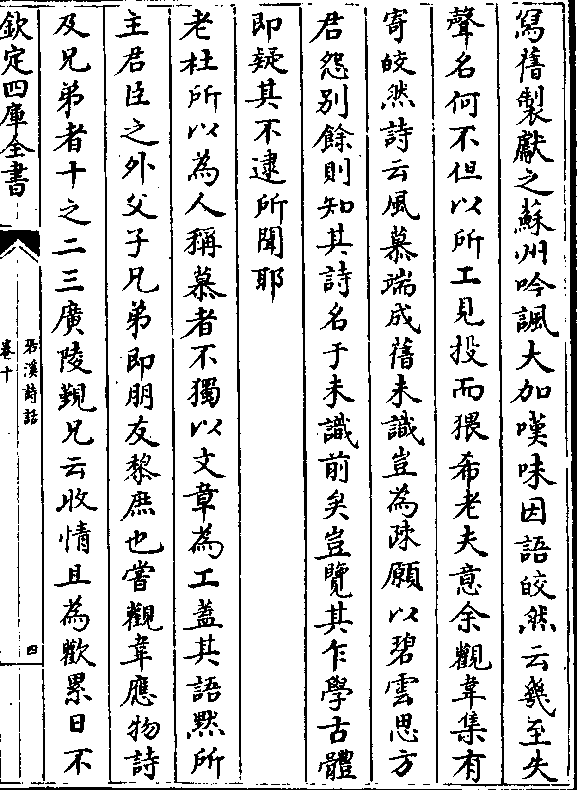 寫舊製獻之蘇州吟諷大加嘆味因語皎然云幾至失
聲名何不但以所工見投而猥希老夫意余觀韋集有
寄皎然詩云風慕端成舊未識豈為疎願以碧雲思方
君怨别餘則知其詩名于未識前矣豈覽其乍學古體
即疑其不逮所聞耶
老杜所以為人稱慕者不獨以文章為工葢其語黙所
主君臣之外父子兄弟即朋友黎庶也嘗觀韋應物詩
及兄弟者十之二三廣陵覲兄云收情且為歡累日不
欽定四庫全書
䂬溪詩話
卷十
四